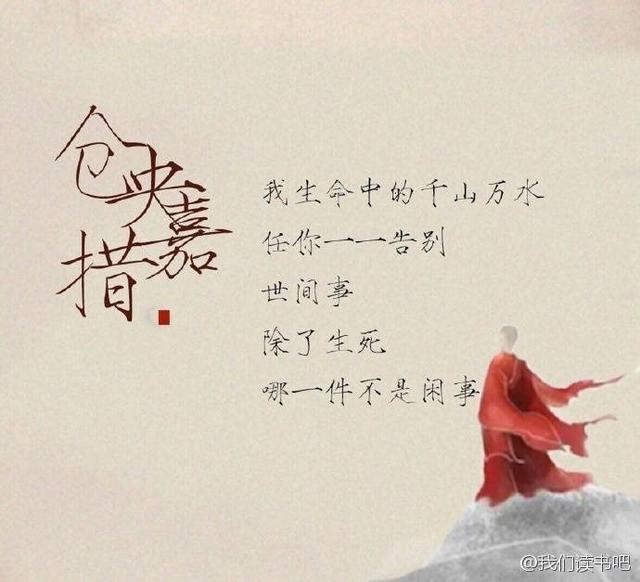 仓央嘉措
我生命中的千山万水
任你一一告别
世间事
除了生死
哪一件不是闲事
@我们读书吧